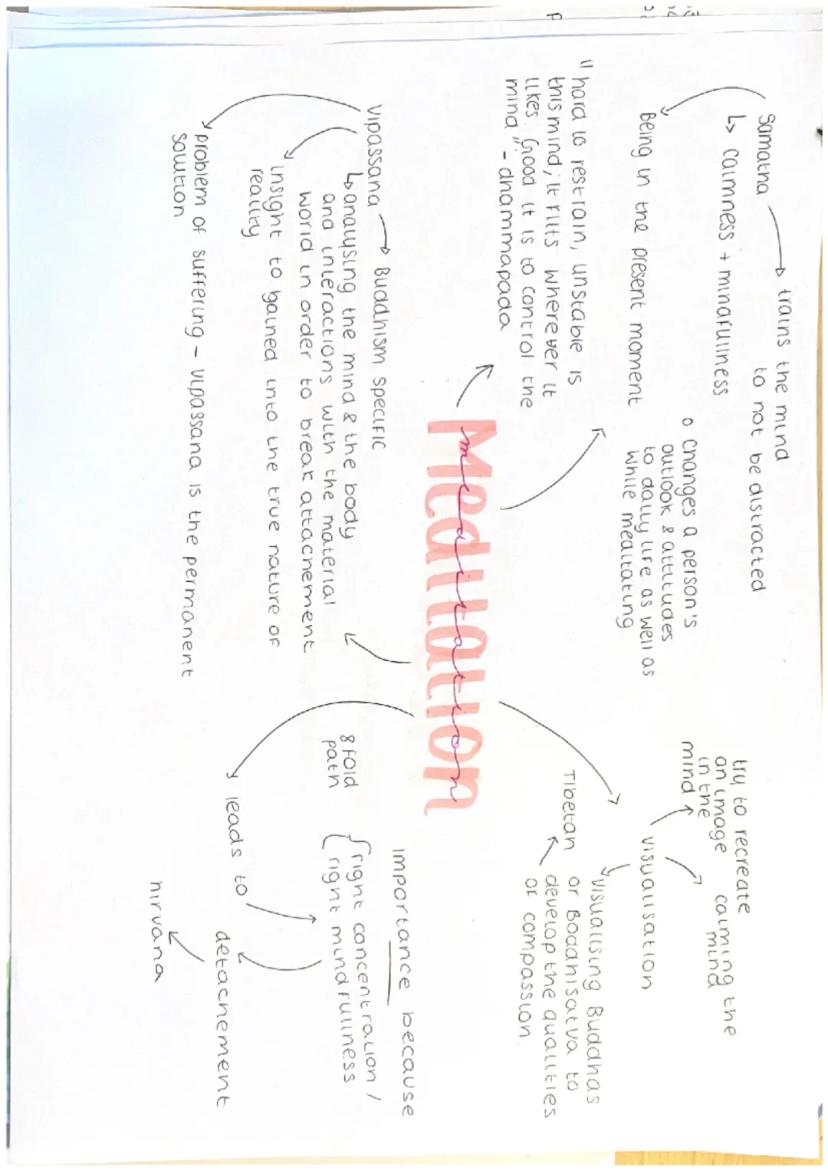 Samatha → trains the mind
to not be distracted
↳ calmness + mindfullness
Being in the present moment
o changes a person's
outlook & attitudes
to daily life as well as
while meditating
"hard to restrain, unstable is
this mind; it flits wherever it
likes. Good it is to control the
mind" - dhammapada
Meditation
meditation
try to recreate
an image
in the
mind
calming the
mind
visualisation
visualising Buddhas
or Bodhisatva to
develop the qualities
of compassion.
Tibetan
Vipassana → Buddhism specific
↳ analysing the mind & the body
and interactions with the material
world in order to break attachement
insight to gained into the true nature of
reality
problem of suffering - vipassana is the permanent
solution
importance because
8 fold
path
right concentration /
right mindfullness
leads to
detachement
nirvana